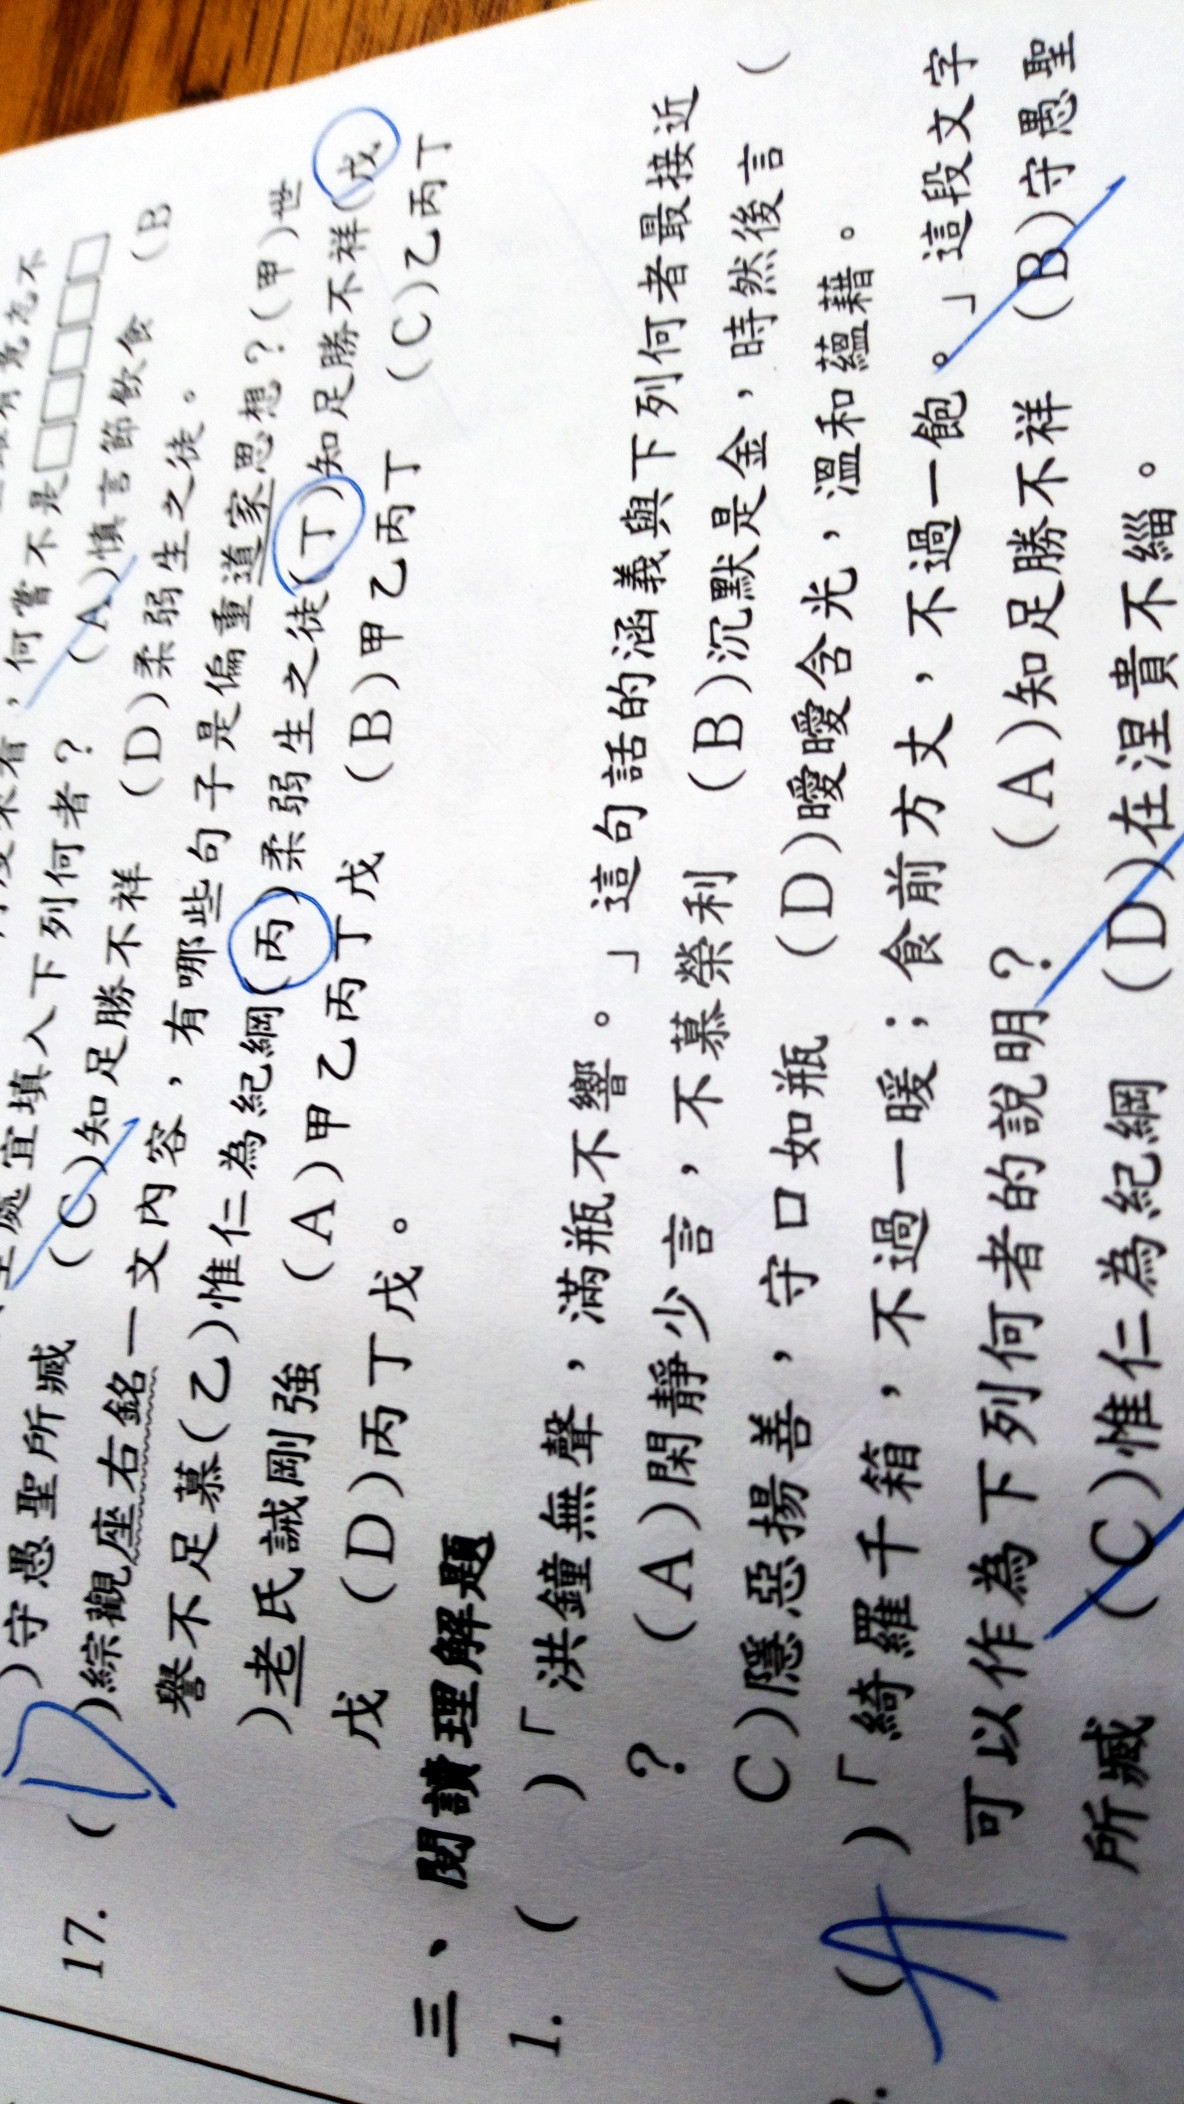 何嘗不是□□□□□
處宜填入下列何者？ (A)慎言節飲食 (B
)守愚聖所臧 (C)知足勝不祥 (D)柔弱生之徒。
17. (D)綜觀座右銘一文內容，有哪些句子是偏重道家思想？(甲)世
譽不足慕(乙)惟仁為紀綱(丙)柔弱生之徒(丁)知足勝不祥(戊
)老氏誡剛強 (A)甲乙丙丁戊 (B)甲乙丙丁 (C)乙丙丁
戊 (D)丙丁戊。
三、閱讀理解題
1. ( )「洪鐘無聲，滿瓶不響。」這句話的涵義與下列何者最接近
？ (A)閑靜少言，不慕榮利 (B)沉默是金，時然後言 (
C)隱惡揚善，守口如瓶 (D)曖曖含光，溫和蘊藉。
(A)「綺羅千箱，不過一暖；食前方丈，不過一飽。」這段文字
可以作為下列何者的說明？ (A)知足勝不祥 (B)守愚聖
所臧 (C)惟仁為紀綱 (D)在涅貴不緇。